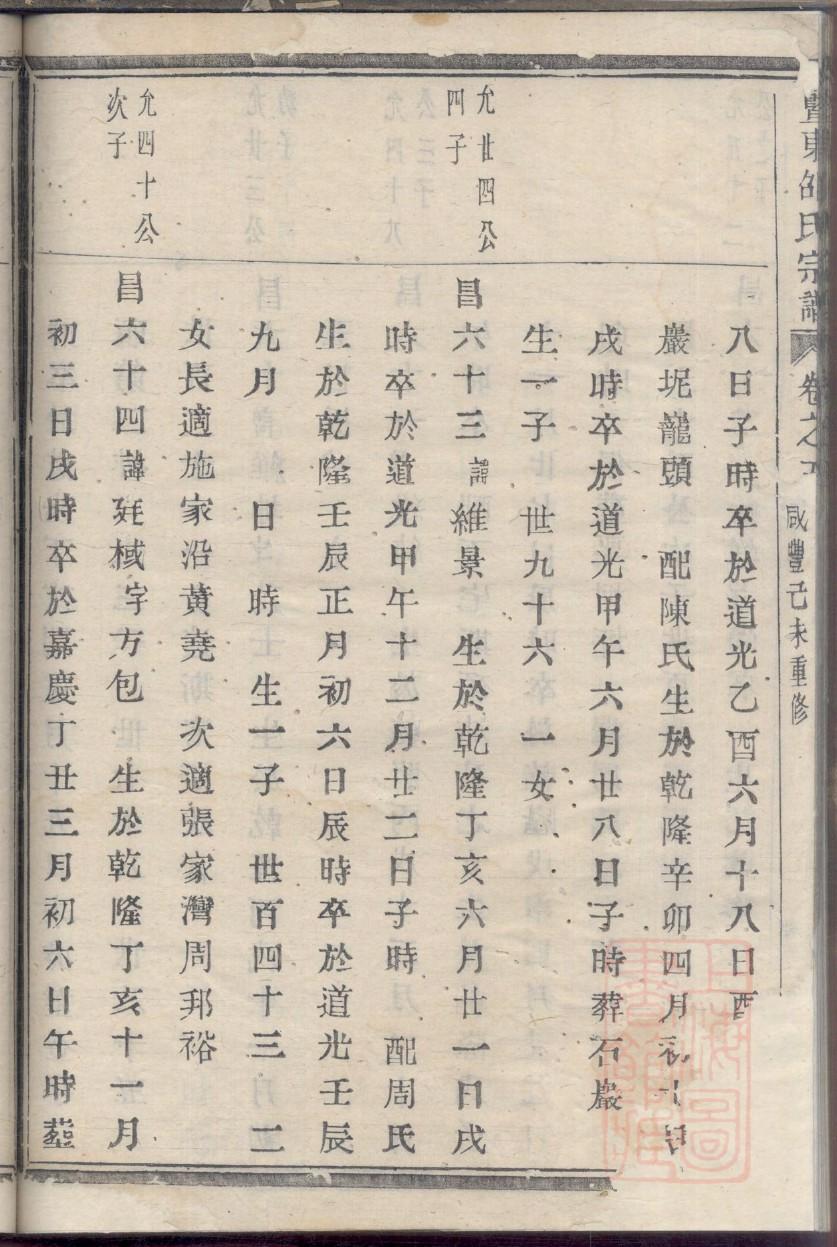 暨東邵氏宗譜
卷之
咸豐己未重修
八日子時卒於道光乙酉六月十八日酉
巖坭龍頭 配陳氏生於乾隆辛卯四月初
戌時卒於道光甲午六月廿八日子時葬石巖
生一子 世九十六 一女
允廿四公
四子
昌六十三 諱維景 生於乾隆丁亥六月廿一日戌
時卒於道光甲午十二月廿二日子時 配周氏
生於乾隆壬辰正月初六日辰時卒於道光壬辰
九月 日 時 生一子 世百四十三 二
女長適施家沿黄堯 次適張家灣周邦裕
允四十公
次子
昌六十四 諱廷棫字方包 生於乾隆丁亥十一月
初三日戌時卒於嘉慶丁丑三月初六日午時葬